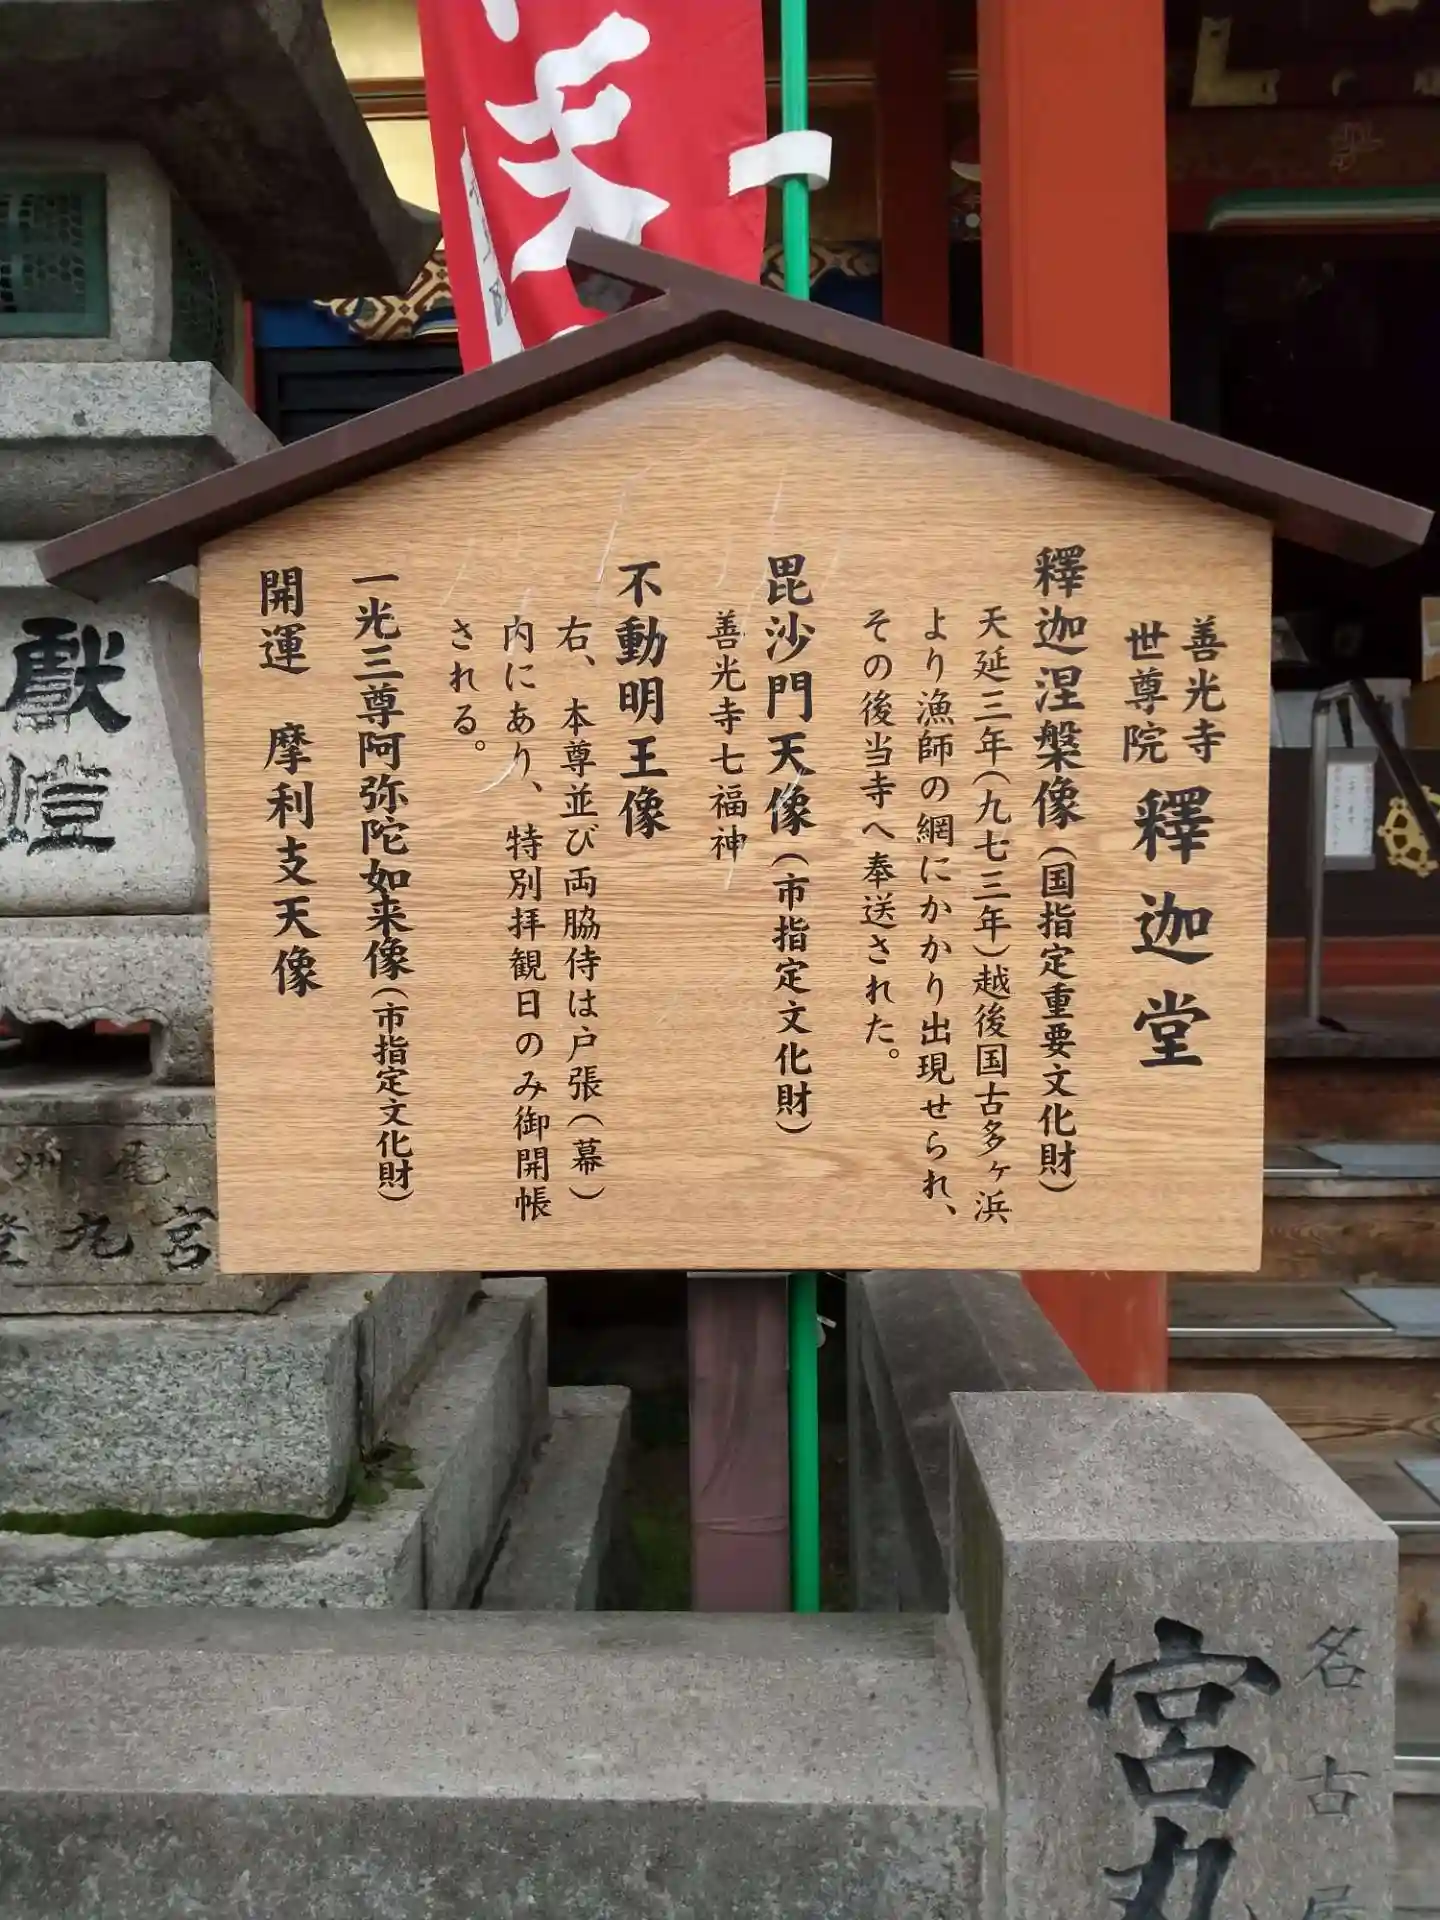 天
善光寺
世尊院
釋迦堂
釋迦涅槃像(国指定重要文化財)
天延三年(九七三年)越後国古多ヶ浜
より漁師の網にかかり出現せられ、
その後当寺へ奉送された。
毘沙門天像(市指定文化財)
善光寺七福神
不動明王像
右、本尊並び両脇侍は戸張(幕)
内にあり、特別拝観日のみ御開帳
される。
一光三尊阿弥陀如来像(市指定文化財)
開運 摩利支天像
獻燈
尾州
宮丸
名古屋
宮丸